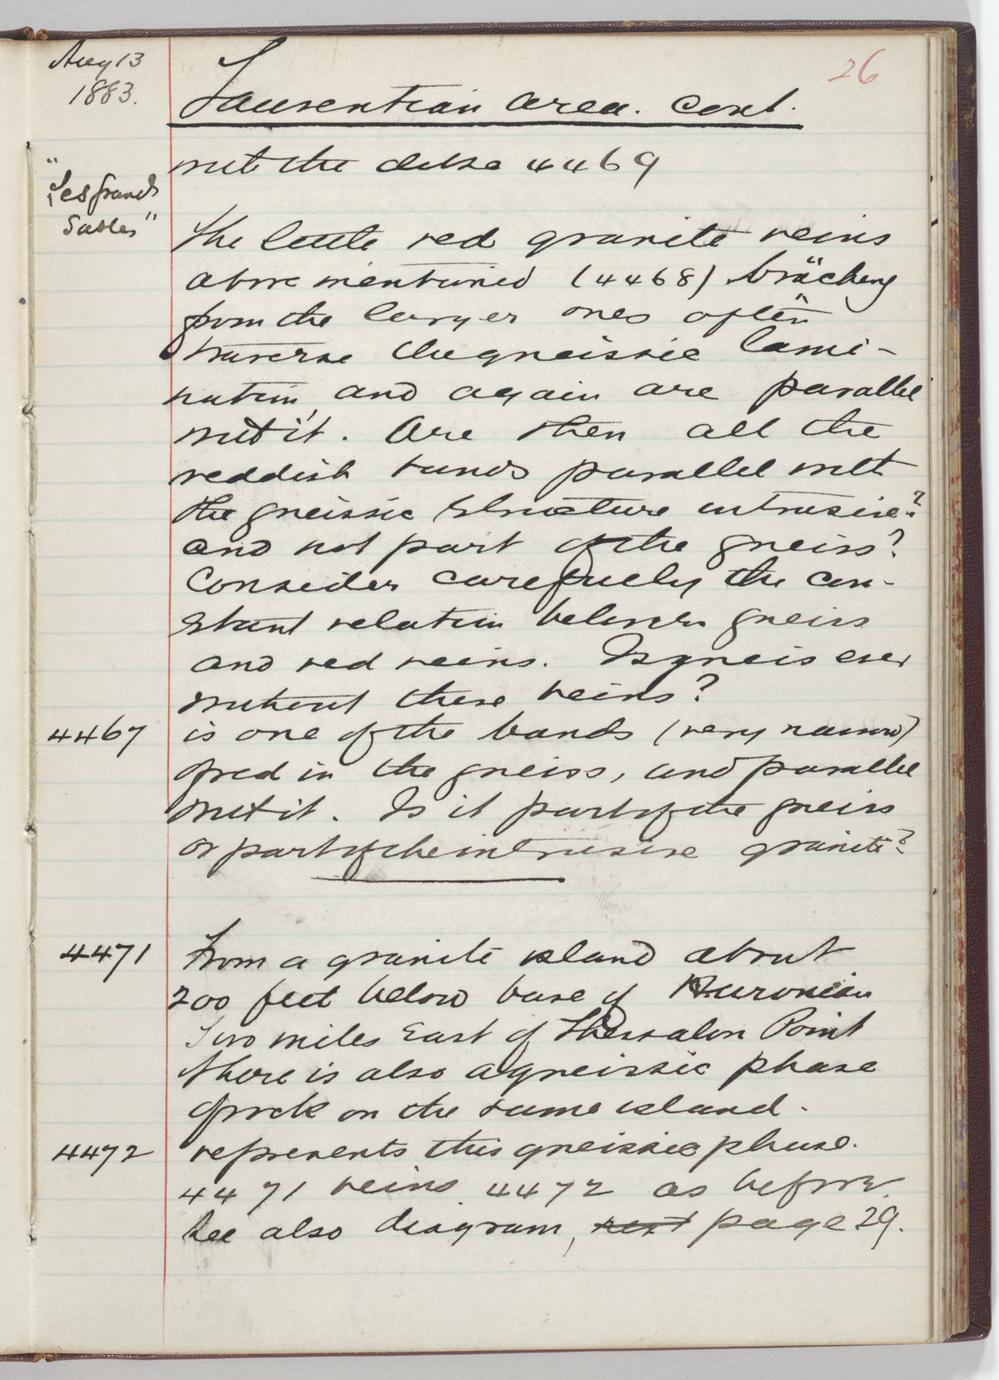 Aug 13
1883.
26
Laurentian area. cont.
"Les grands
Sables"
with the dike 4469
The little red granite veins
above mentioned (4468) braching
from the larger ones often
traverse the gneissic lami-
nation, and again are parallel
with it. Are then all the
reddish bands parallel with
the gneissic structure intrusive?
and not part of the gneiss?
Consider carefully the con-
stant relation between gneiss
and red veins. Is gneis ever
without these veins?
4467 is one of the bands (very narrow)
of red in the gneiss, and parallel
with it. Is it part of the gneiss
or part of the intrusive granite?
4471 From a granite island about
200 feet below base of Huronian
Two miles East of Thessalon Point
there is also a gneissic phase
of rock on the same island.
4472 represents this gneissic phase.
4471 veins 4472 as before.
See also diagram, next page 29.